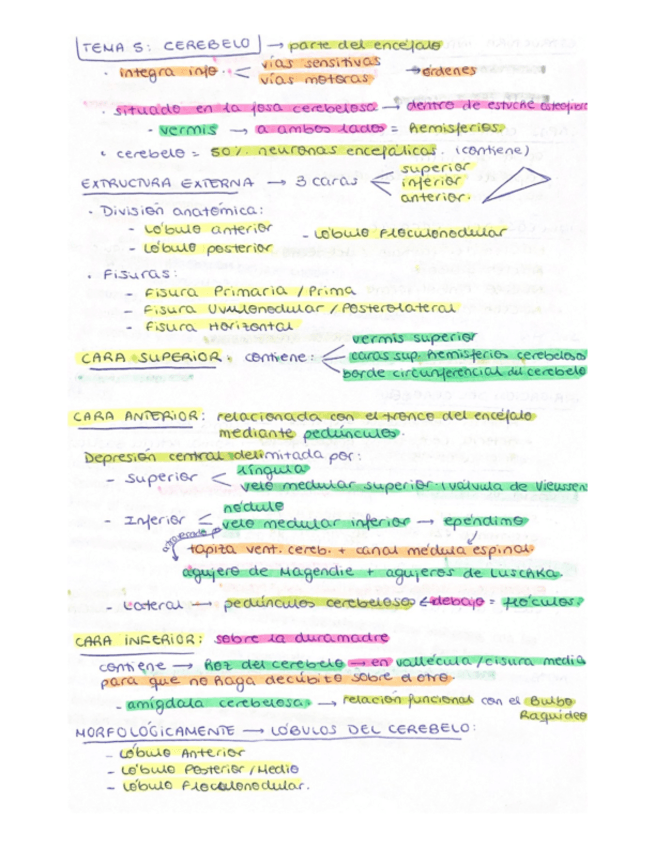 TEMA 5: CEREBELO → parte del encéfalo
· integra info. < vías sensitivas
vías motoras → órdenes
· situado en la fosa cerebelosa → dentro de estuche osteofibro
· vermis → a ambos lados = hemisferios.
· cerebelo = 50% neuronas encefálicas. (contiene)
EXTRUCTURA EXTERNA → 3 caras < superior
inferior
anterior.
· División anatómica:
- Lóbulo anterior - Lóbulo Floculonodular
- Lóbulo posterior
· Fisuras:
- Fisura Primaria / Prima
- Fisura Uvulonodular / Posterolateral
- Fisura Horizontal
CARA SUPERIOR. contiene: < vermis superior
caras sup. hemisferios cerebeloso
borde circunferencial del cerebelo
CARA ANTERIOR: relacionada con el tronco del encéfalo
mediante pedúnculos.
Depresión central delimitada por:
- Superior < Língula
velo medular superior. (válvula de Vieussens
- Inferior < nódulo
velo medular inferior → epéndimo
tapiza vent. cereb. + canal médula espinal
agujero de Magendie + agujeros de Luschka.
- Lateral → pedúnculos cerebelosos < debajo = flóculos.
CARA INFERIOR: sobre la duramadre
contiene → Hoz del cerebelo → en vallécula / cisura media
para que no haga decúbito sobre el otro.
- amígdala cerebelosa → relación funcional con el Bulbo
Raquídeo
MORFOLÓGICAMENTE → LÓBULOS DEL CEREBELO:
- Lóbulo Anterior
- Lóbulo Posterior / Medio
- Lóbulo Floculonodular.